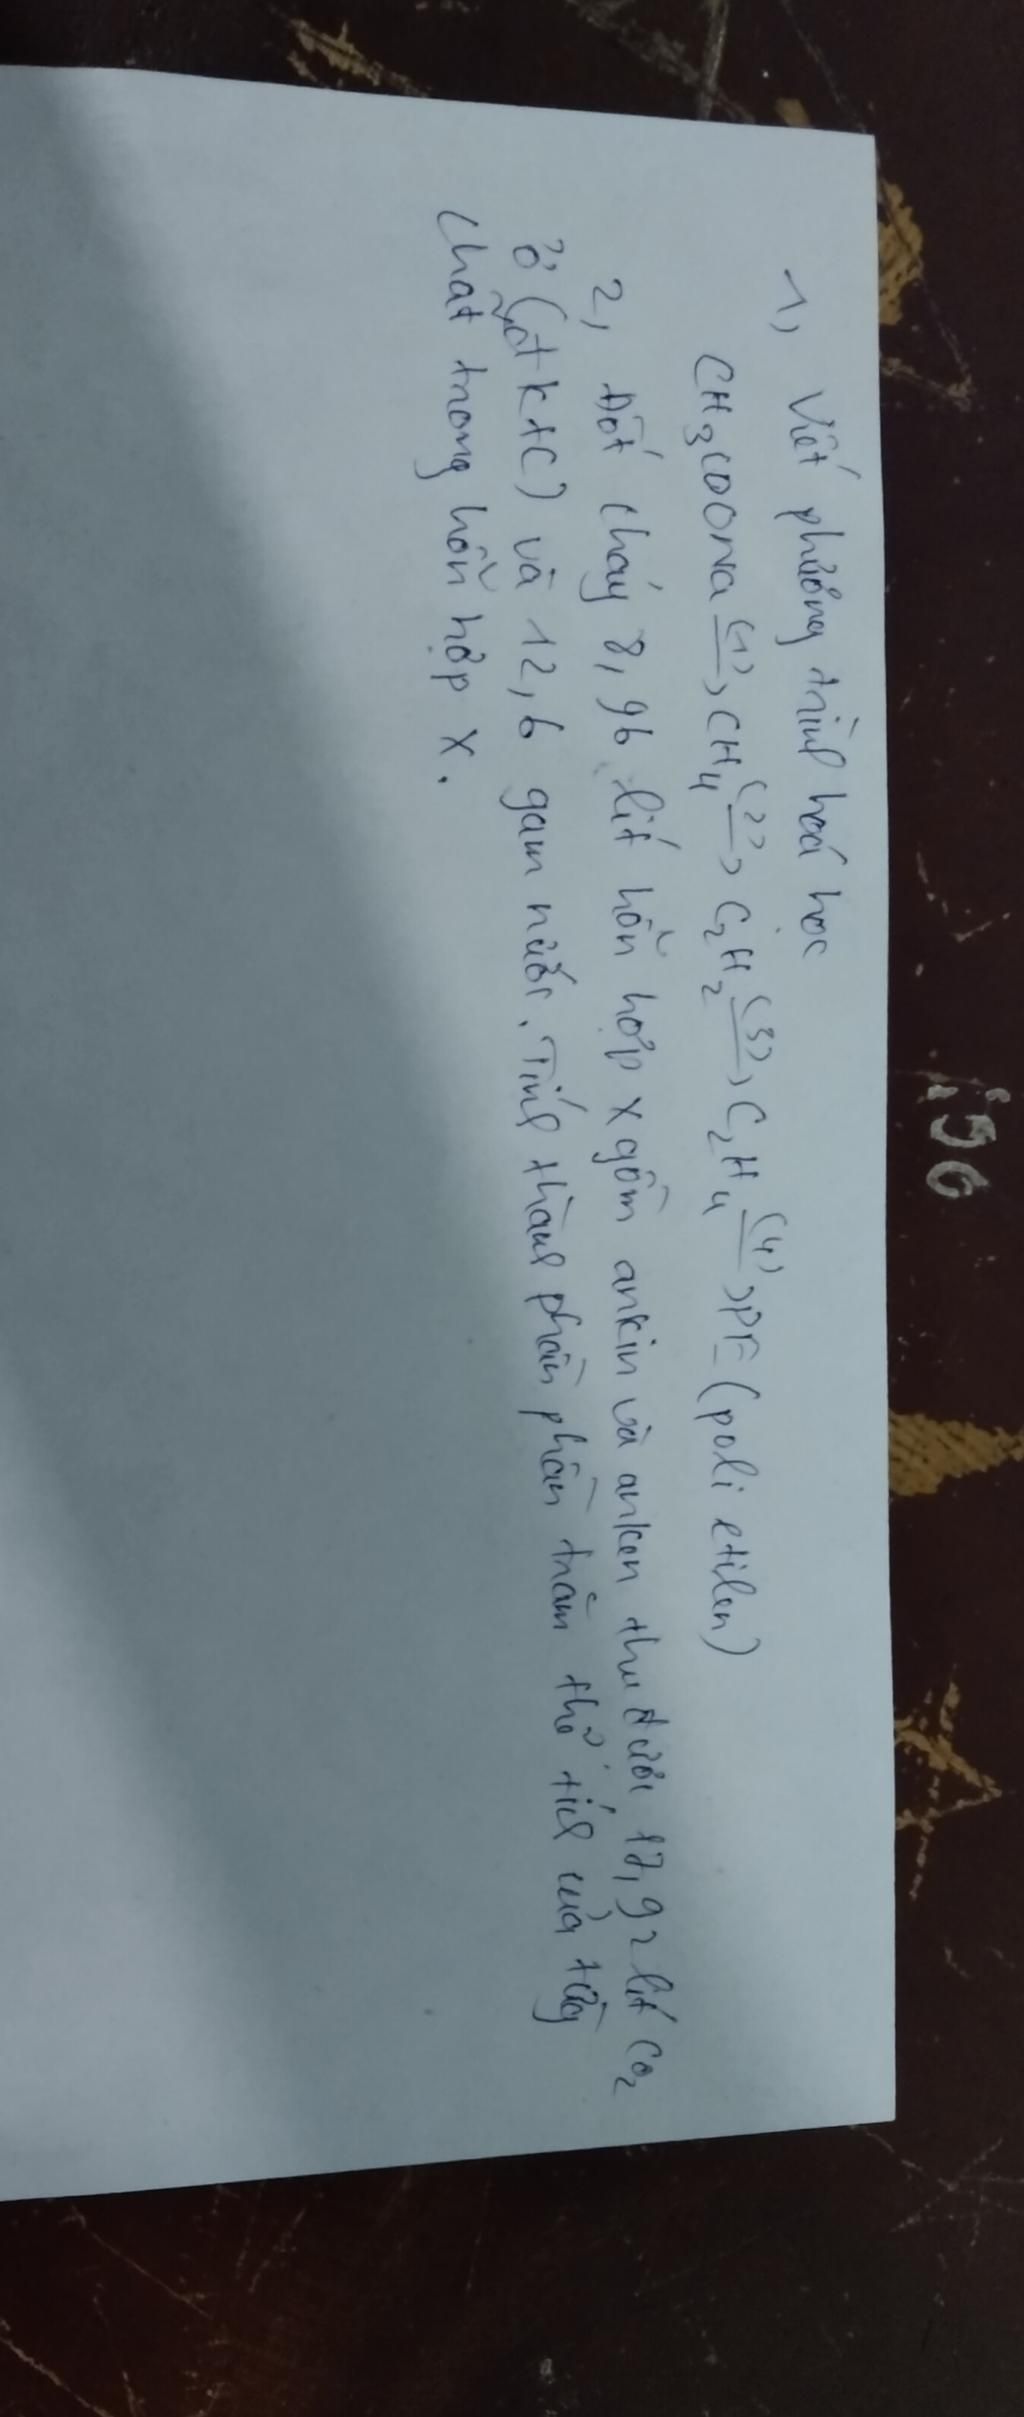 1, Viết phương trình hoá học
CH3COONa (1)→ CH4 (2)→ C2H2 (3)→ C2H4 (4)→ PE (poli etilen)
2, Đốt cháy 8,96 lít hỗn hợp X gồm ankin và anken thu được 17,92 lít CO2
ở (đktc) và 12,6 gam nước. Tính thành phần phần trăm thể tích của từng
chất trong hỗn hợp X.